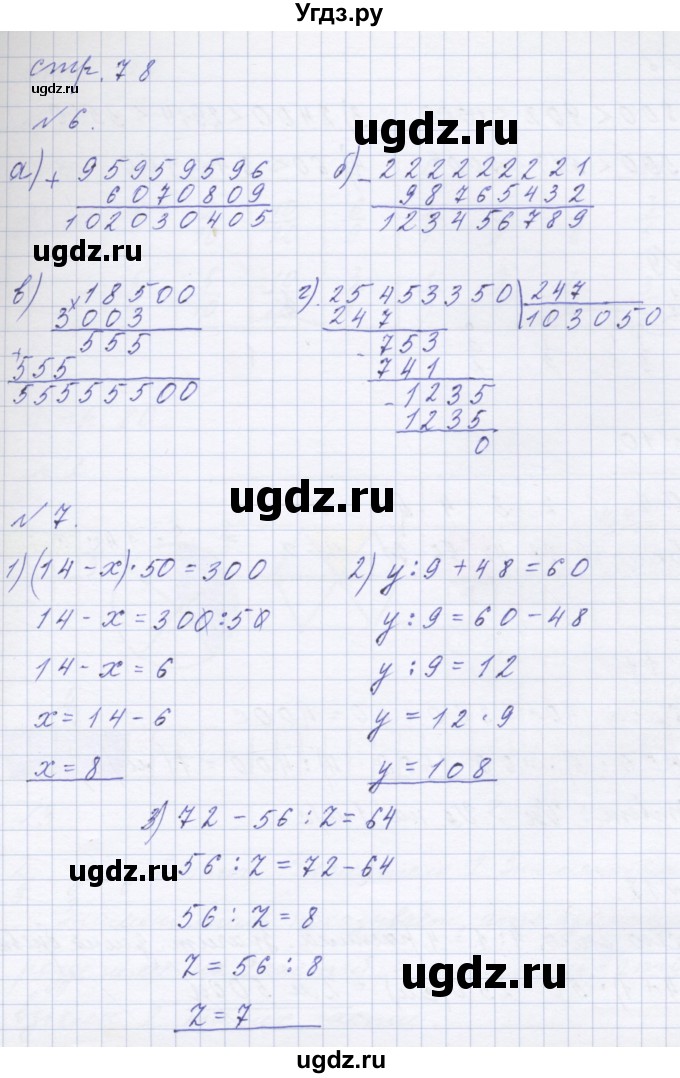 Угдз.ру
стр. 78
ugdz.ru
№ 6.
ugdz.ru
а) + 95959596
6070809
102030405
б) - 222222221
98765432
123456789
ugdz.ru
в) x 18500
3003
555
+ 555
55555500
г) 25453350 247
247 103050
- 753
741
- 1235
1235
0
ugdz.ru
№ 7.
1) (14 - x) · 50 = 300
14 - x = 300 : 50
14 - x = 6
x = 14 - 6
x = 8
2) y : 9 + 48 = 60
y : 9 = 60 - 48
y : 9 = 12
y = 12 · 9
y = 108
3) 72 - 56 : z = 64
ugdz.ru
56 : z = 72 - 64
56 : z = 8
z = 56 : 8
ugdz.ru
z = 7
ugdz.ru